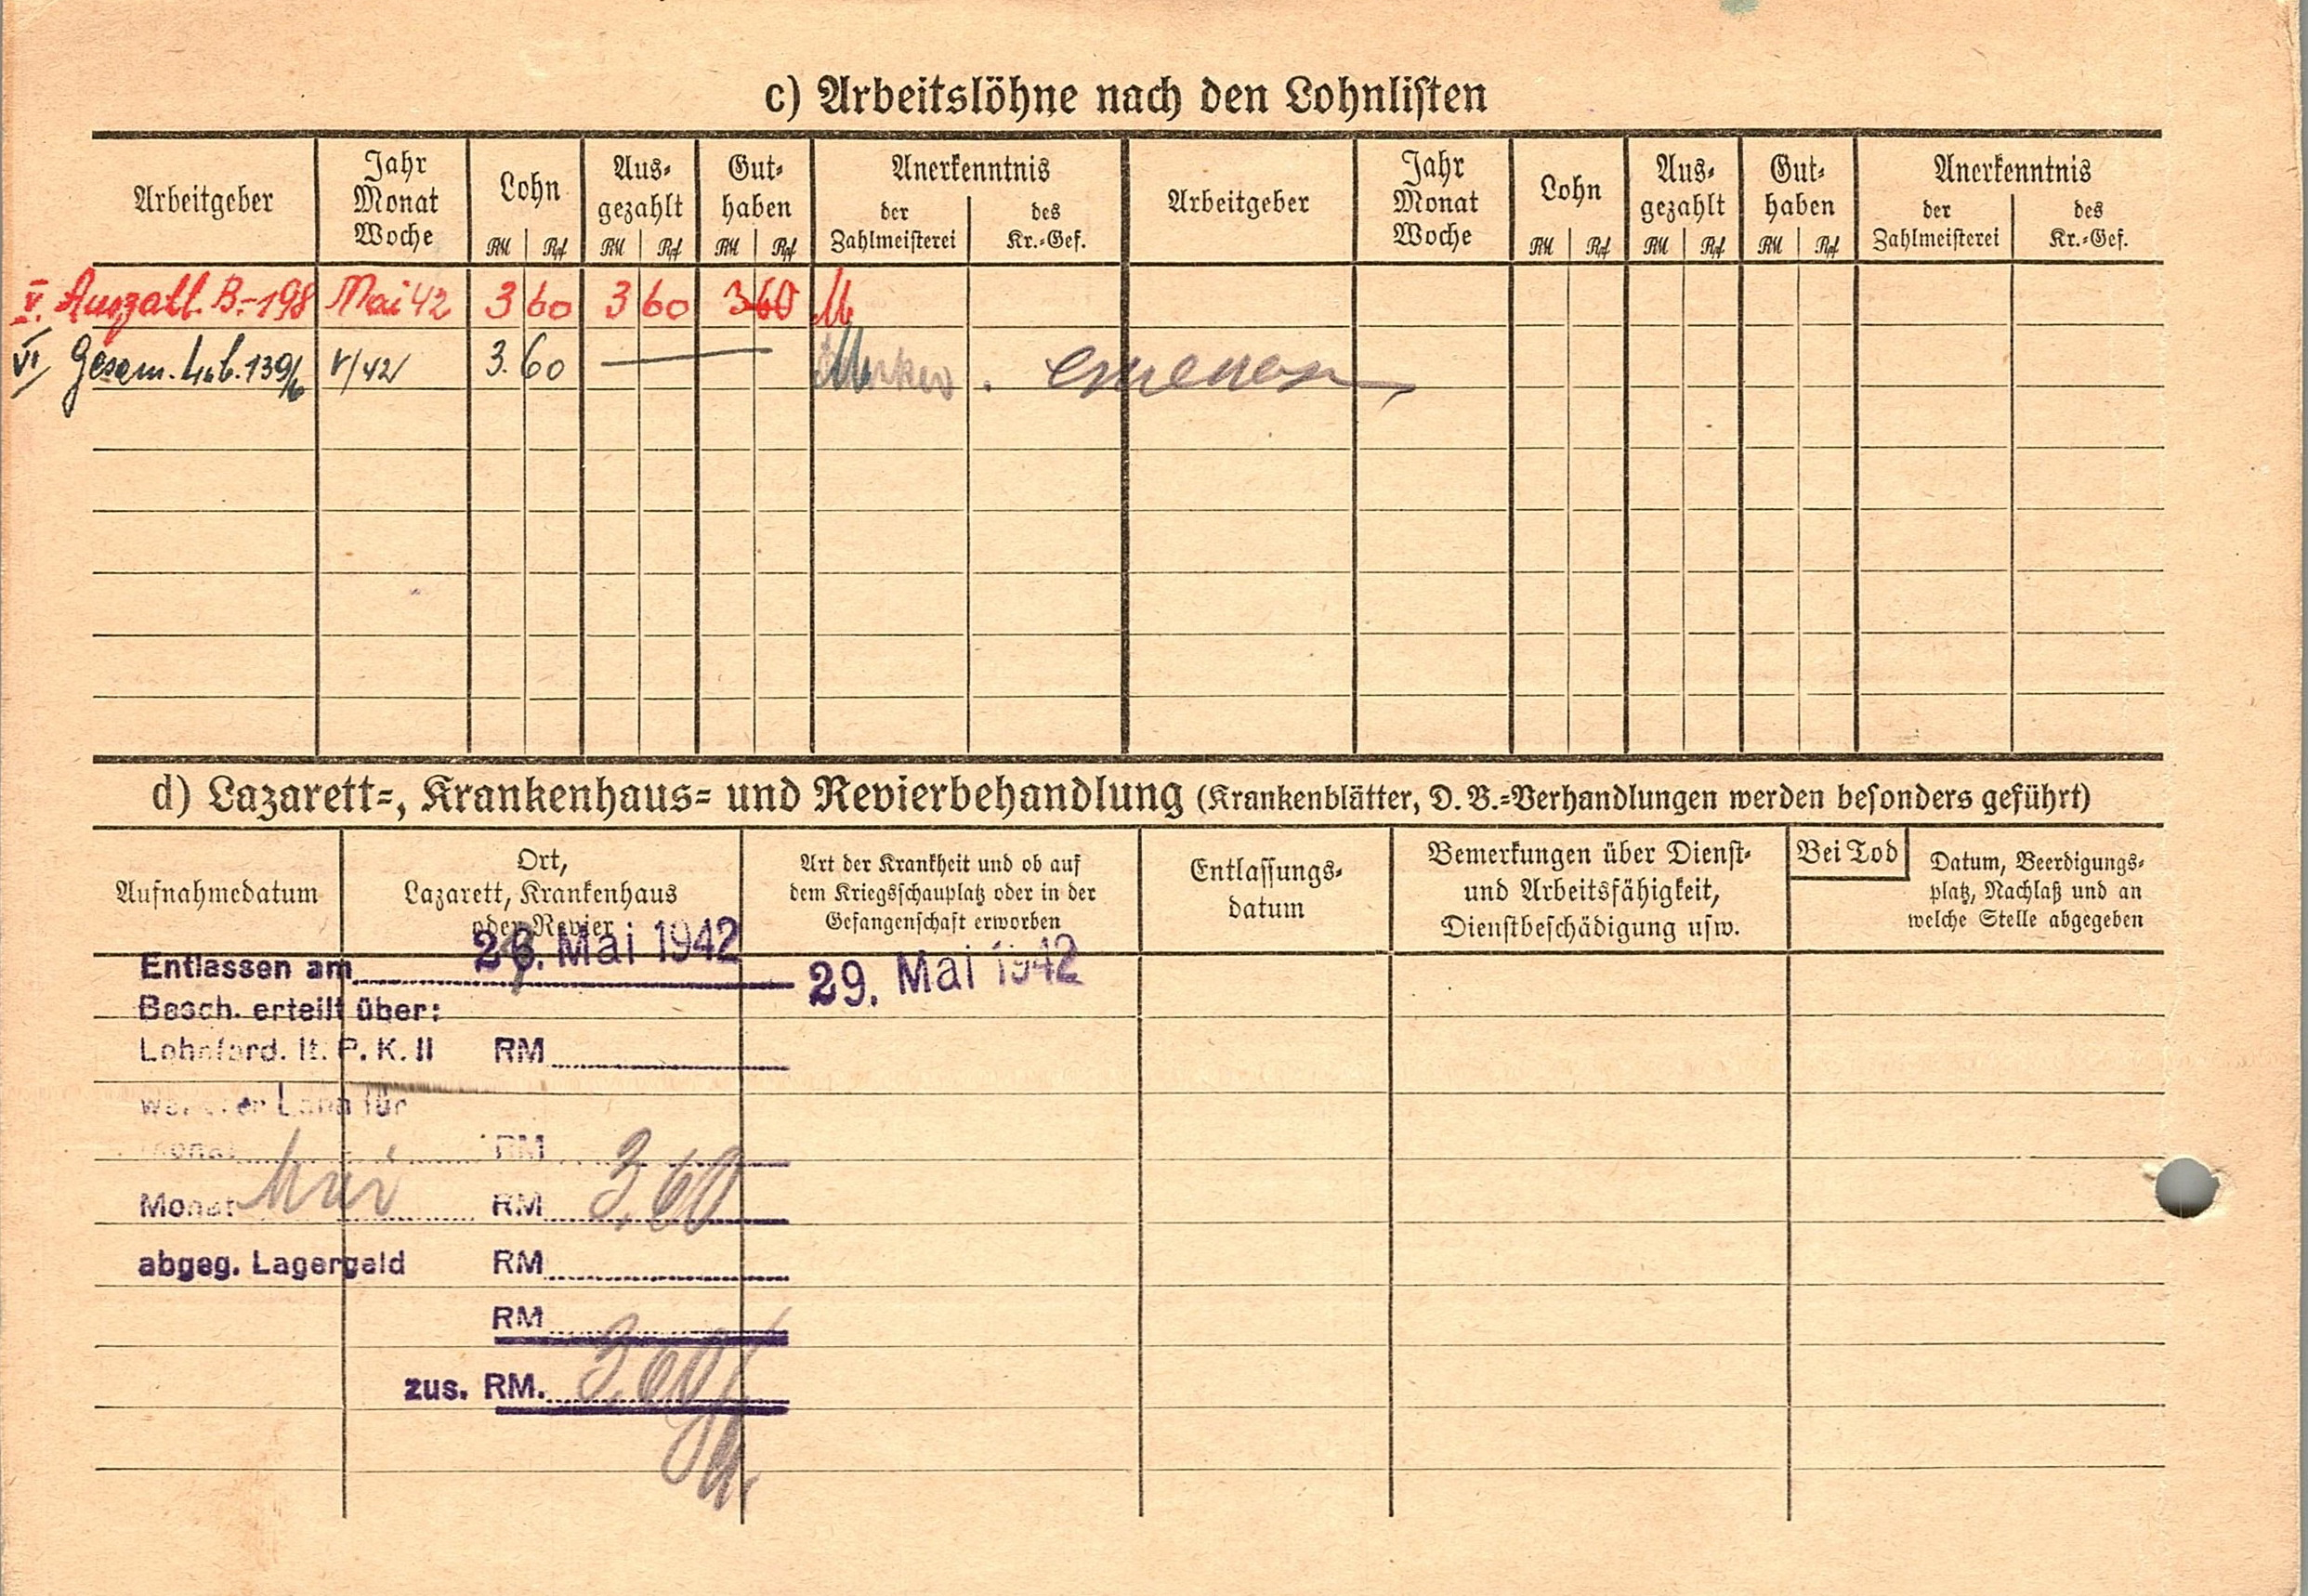 c) Arbeitslöhne nach den Lohnlisten
Arbeitgeber Jahr Monat Woche Lohn Aus- gezahlt Gut- haben Anerkenntnis Arbeitgeber Jahr Monat Woche Lohn Aus- gezahlt Gut- haben Anerkenntnis
RM Rpf RM Rpf RM Rpf der Zahlmeisterei des Kr.-Gef. RM Rpf RM Rpf RM Rpf der Zahlmeisterei des Kr.-Gef.
V. Auszahl. B.-198 Mai 42 3 60 3 60 3 60
VI Gesam. 139/6 V/42 3.60 —
d) Lazarett-, Krankenhaus- und Revierbehandlung (Krankenblätter, D. B.-Verhandlungen werden besonders geführt)
Aufnahmedatum
Ort,
Lazarett, Krankenhaus
oder Revier
Art der Krankheit und ob auf
dem Kriegsschauplatz oder in der
Gefangenschaft erworben
Entlassungs-
datum
Bemerkungen über Dienst-
und Arbeitsfähigkeit,
Dienstbeschädigung usw.
Bei Tod
Datum, Beerdigungs-
platz, Nachlaß und an
welche Stelle abgegeben
Entlassen am Mai 1942 29. Mai 1942
Besch. erteilt über:
Lohnford. lt. P. K. II RM
weiterer Lohn für
Monat RM
Monat Mai RM 3,60
abgeg. Lagergeld RM
RM
zus. RM. 3,60